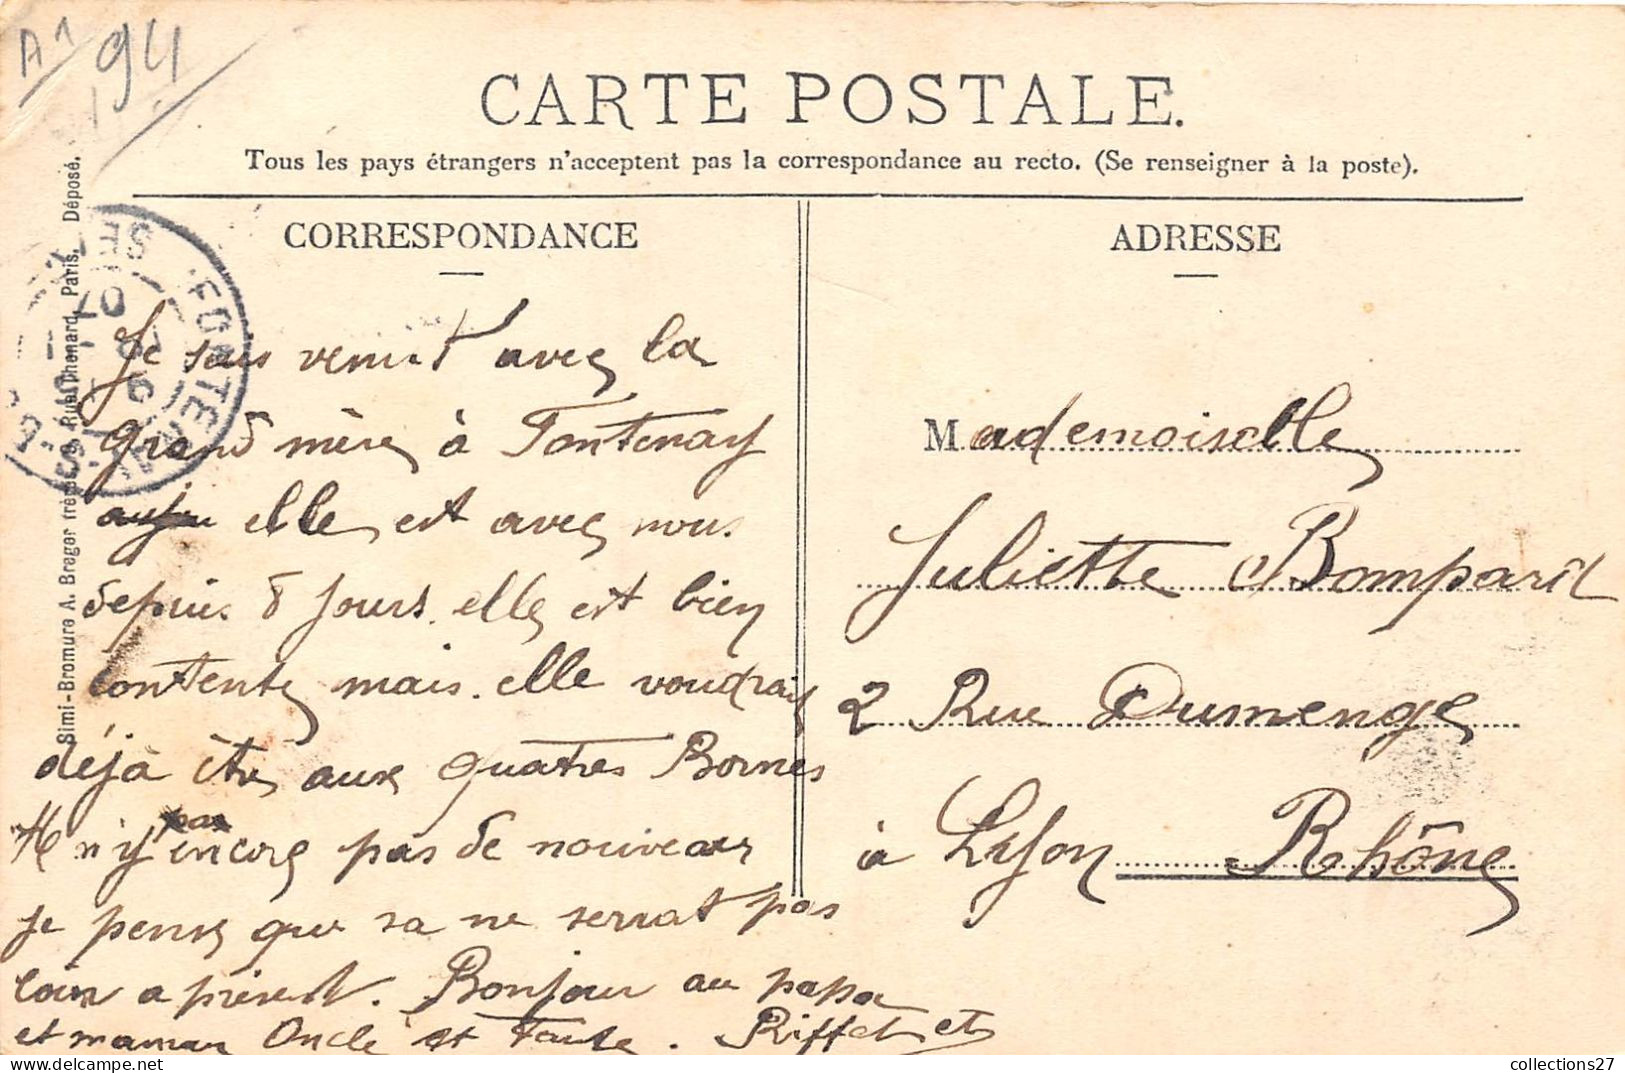 A1 94
CARTE POSTALE.
Tous les pays étrangers n'acceptent pas la correspondance au recto. (Se renseigner à la poste).
CORRESPONDANCE
Je suis venut avec la
grand mère à Fontenay
elle est avec nous
depuis 8 jours. elle est bien
contente mais elle voudrais
déjà être aux quatres Bornes
Il n'y encore pas de nouveaux
je pense que sa ne serrat pas
loin a présent. Bonjour au papa
et maman Oncle et Tante. Riffet et
ADRESSE
Mademoiselle
Juliette Bompard
2 Rue Dumenge
à Lyon Rhône
Simi-Bromure A. Breger frères, 9, Rue Thénard, Paris. Déposé.
FONTENAY
07
collections27